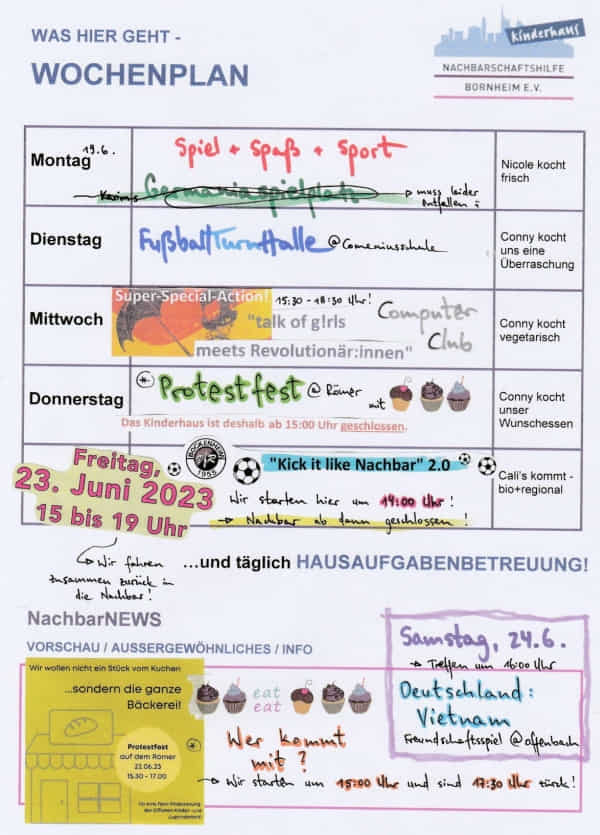 WAS HIER GEHT -
WOCHENPLAN
kinderhaus
NACHBARSCHAFTSHILFE
BORNHEIM E.V.
Montag 19.6.
Spiel + Spaß + Sport
Germaniaspielplatz
→ muss leider
entfallen :
Nicole kocht
frisch
Dienstag
Fußball Turnhalle @Comeniusschule
Conny kocht
uns eine
Überraschung
Mittwoch
Super-Special-Action!
15:30 - 18:30 Uhr!
"talk of g!rls
meets Revolutionär:innen"
Computer
Club
Conny kocht
vegetarisch
Donnerstag
* Protestfest @ Römer mit
Das Kinderhaus ist deshalb ab 15:00 Uhr geschlossen.
Conny kocht
unser
Wunschessen
Freitag,
23. Juni 2023
15 bis 19 Uhr
BOCKENHEIM
1955
"Kick it like Nachbar" 2.0
Wir starten hier um 14:00 Uhr!
→ Nachbar ab dann geschlossen!
Cali's kommt -
bio+regional
→ Wir fahren
zusammen zurück in
die Nachbar!
...und täglich HAUSAUFGABENBETREUUNG!
NachbarNEWS
VORSCHAU / AUSSERGEWÖHNLICHES / INFO
Samstag, 24.6.
→ Treffen um 16:00 Uhr
Deutschland:
Vietnam
Freundschaftsspiel @Offenbach
Wir wollen nicht ein Stück vom Kuchen
...sondern die ganze
Bäckerei!
Protestfest
auf dem Römer
22.06.23
15.30 - 17.00
*
eat
eat
Wer kommt
mit?
→ Wir starten um 15:00 Uhr und sind 17:30 Uhr zurück!